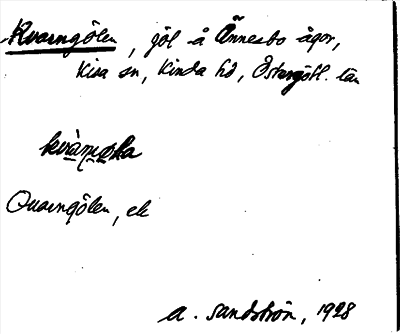 Kvarngölen, göl å Ånnesbo ägor,
Kisa sn, Kinda hd, Östergötl. län
Qvarngölen, ek
A. Sandström, 1928